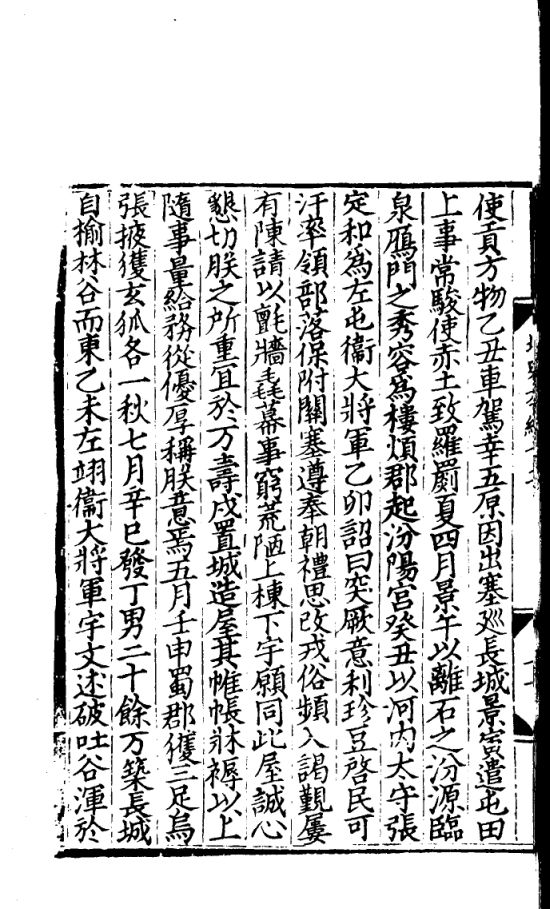 使貢方物乙丑車駕幸五原因出塞廵長城景寅遣屯田
上事常駿使赤土致羅罽夏四月景午以離石之汾源臨
泉鴈門之秀容爲樓煩郡起汾陽宮癸丑以河内太守張
定和爲左屯衞大將軍乙卯詔曰突厥意利珍豆啓民可
汗率領部落保附關塞遵奉朝禮思改戎俗頻入謁覲屢
有陳請以氈牆毳幕事窮荒陋上棟下宇願同此屋誠心
懇切朕之所重宜於万壽戍置城造屋其帷帳牀褥以上
隨事量給務從優厚稱朕意焉五月壬申蜀郡獲三足烏
張掖獲玄狐各一秋七月辛巳發丁男二十餘万築長城
自榆林谷而東乙未左翊衞大將軍宇文述破吐谷渾於